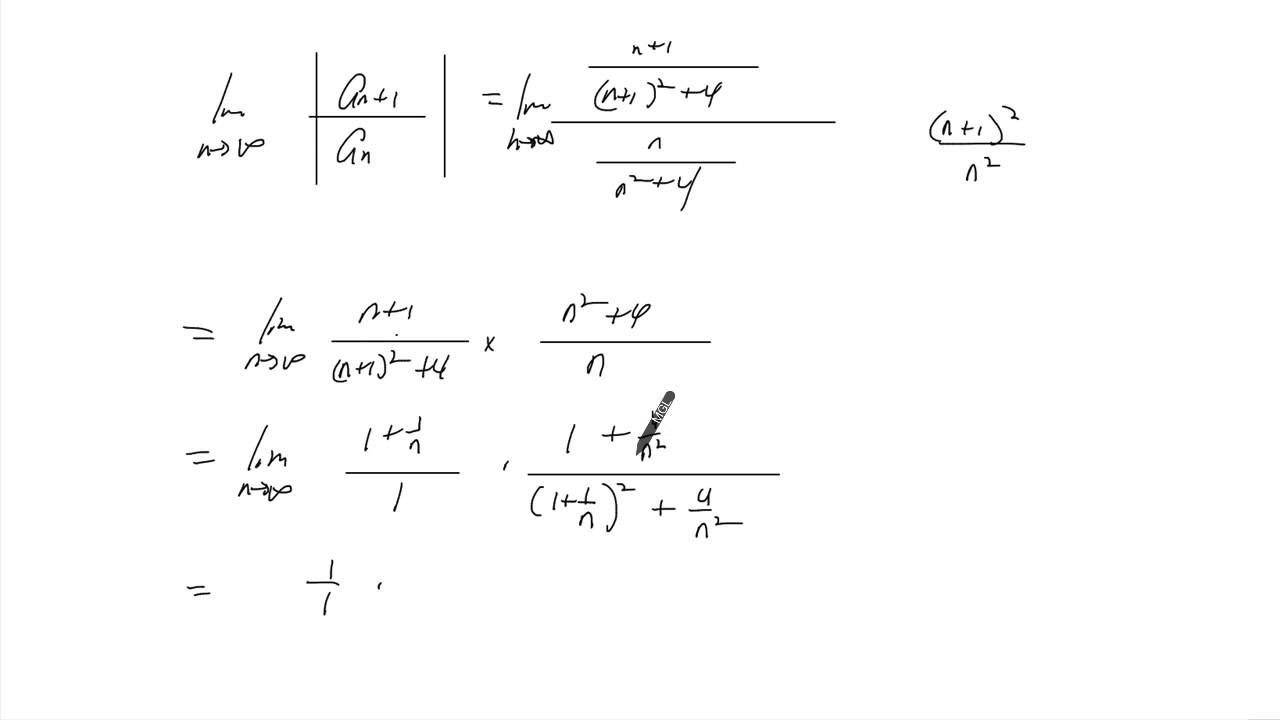 lim n→∞ | a_{n+1} / a_n | = lim n→∞ ((n+1) / ((n+1)^2 + 4)) / (n / (n^2 + 4))
(n+1)^2 / n^2
= lim n→∞ (n+1) / ((n+1)^2 + 4) × (n^2 + 4) / n
= lim n→∞ (1 + 1/n) / 1 · (1 + /n^2) / ((1 + 1/n)^2 + 4/n^2)
= 1/1 ·
MGL